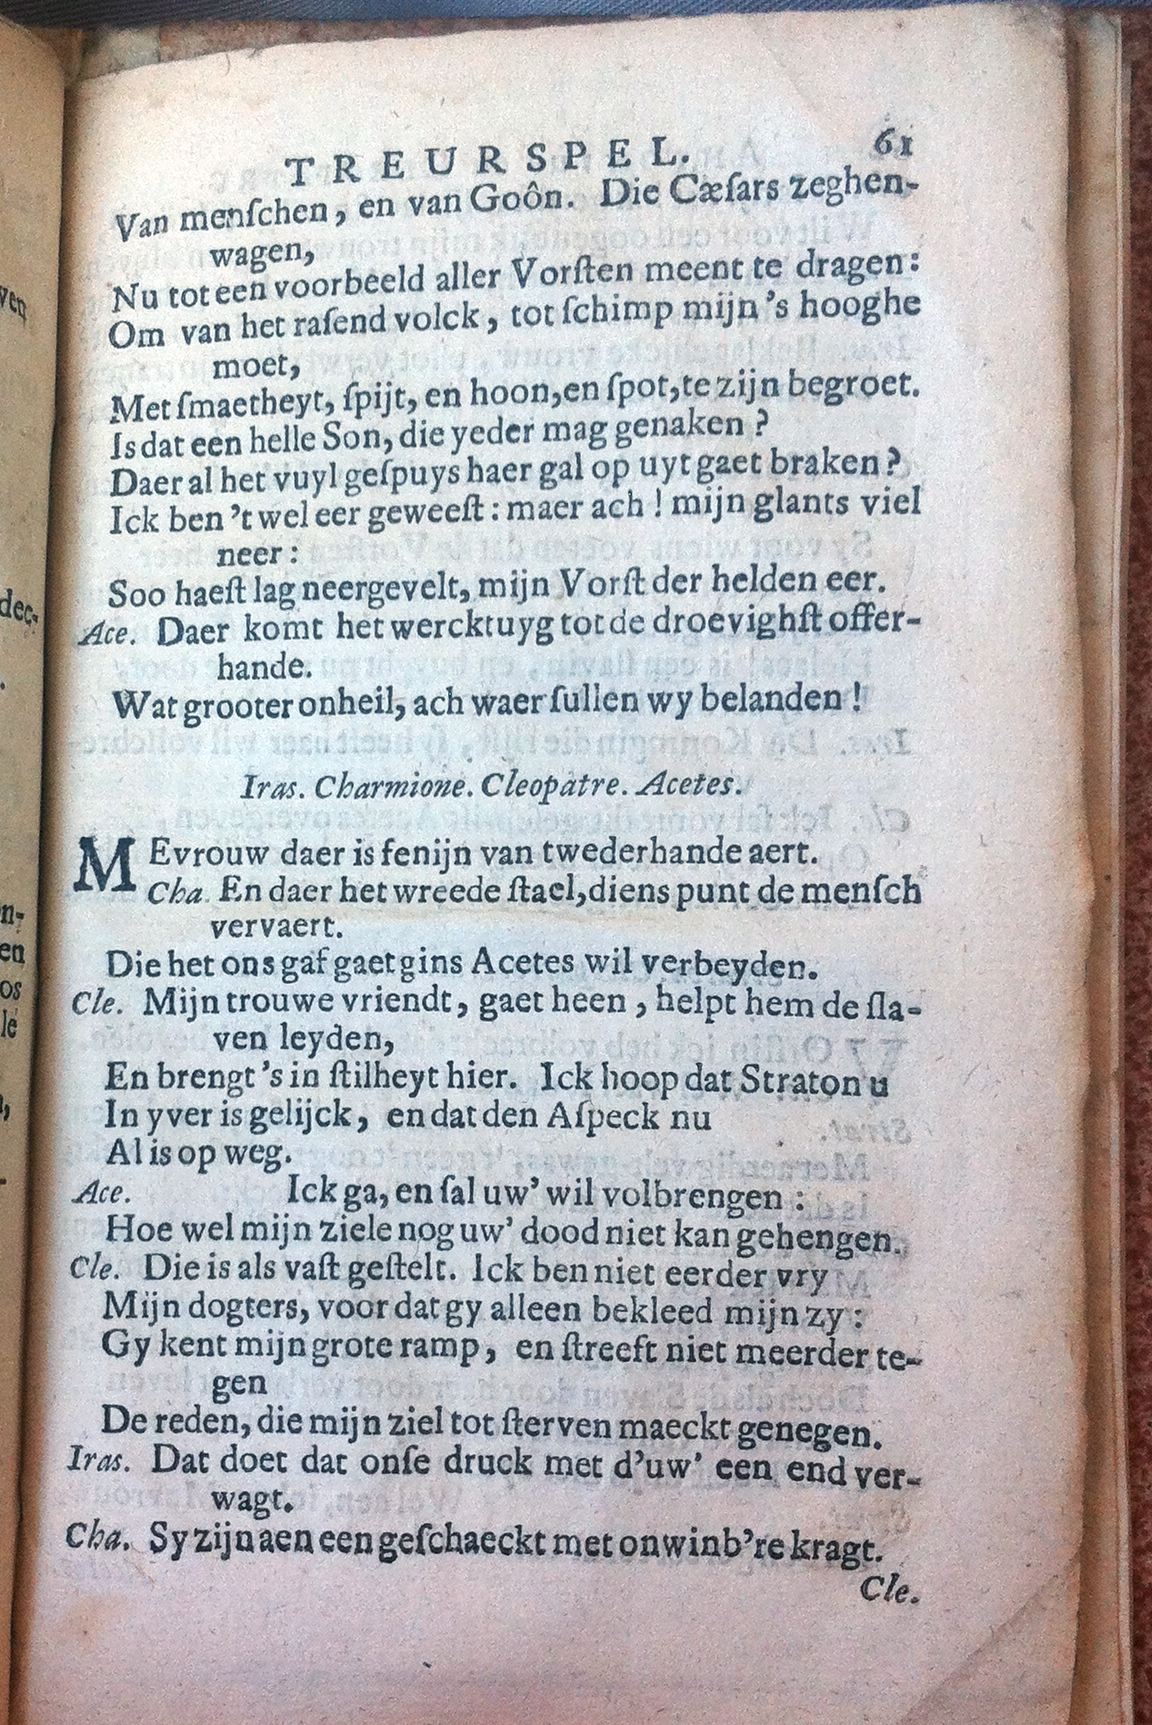 TREURSPEL. 61
Van menſchen, en van Goôn. Die Cæſars zeghen-
wagen,
Nu tot een voorbeeld aller Vorſten meent te dragen:
Om van het raſend volck, tot ſchimp mijn 's hooghe
moet,
Met ſmaetheyt, ſpijt, en hoon, en ſpot, te zijn begroet.
Is dat een helle Son, die yeder mag genaken?
Daer al het vuyl geſpuys haer gal op uyt gaet braken?
Ick ben 't wel eer geweeſt: maer ach! mijn glants viel
neer:
Soo haeſt lag neergevelt, mijn Vorſt der helden eer.
Ace. Daer komt het wercktuyg tot de droevighſt offer-
hande.
Wat grooter onheil, ach waer ſullen wy belanden!
Iras. Charmione. Cleopatre. Acetes.
MEvrouw daer is fenijn van twederhande aert.
Cha. En daer het wreede ſtael, diens punt de menſch
vervaert.
Die het ons gaf gaet gins Acetes wil verbeyden.
Cle. Mijn trouwe vriendt, gaet heen, helpt hem de ſla-
ven leyden,
En brengt 's in ſtilheyt hier. Ick hoop dat Straton u
In yver is gelijck, en dat den Aſpeck nu
Al is op weg.
Ace. Ick ga, en ſal uw' wil volbrengen:
Hoe wel mijn ziele nog uw' dood niet kan gehengen.
Cle. Die is als vaſt geſtelt. Ick ben niet eerder vry
Mijn dogters, voor dat gy alleen bekleed mijn zy:
Gy kent mijn grote ramp, en ſtreeft niet meerder te-
gen
De reden, die mijn ziel tot ſterven maeckt genegen.
Iras. Dat doet dat onſe druck met d'uw' een end ver-
wagt.
Cha. Sy zijn aen een geſchaeckt met onwinb're kragt.
Cle.